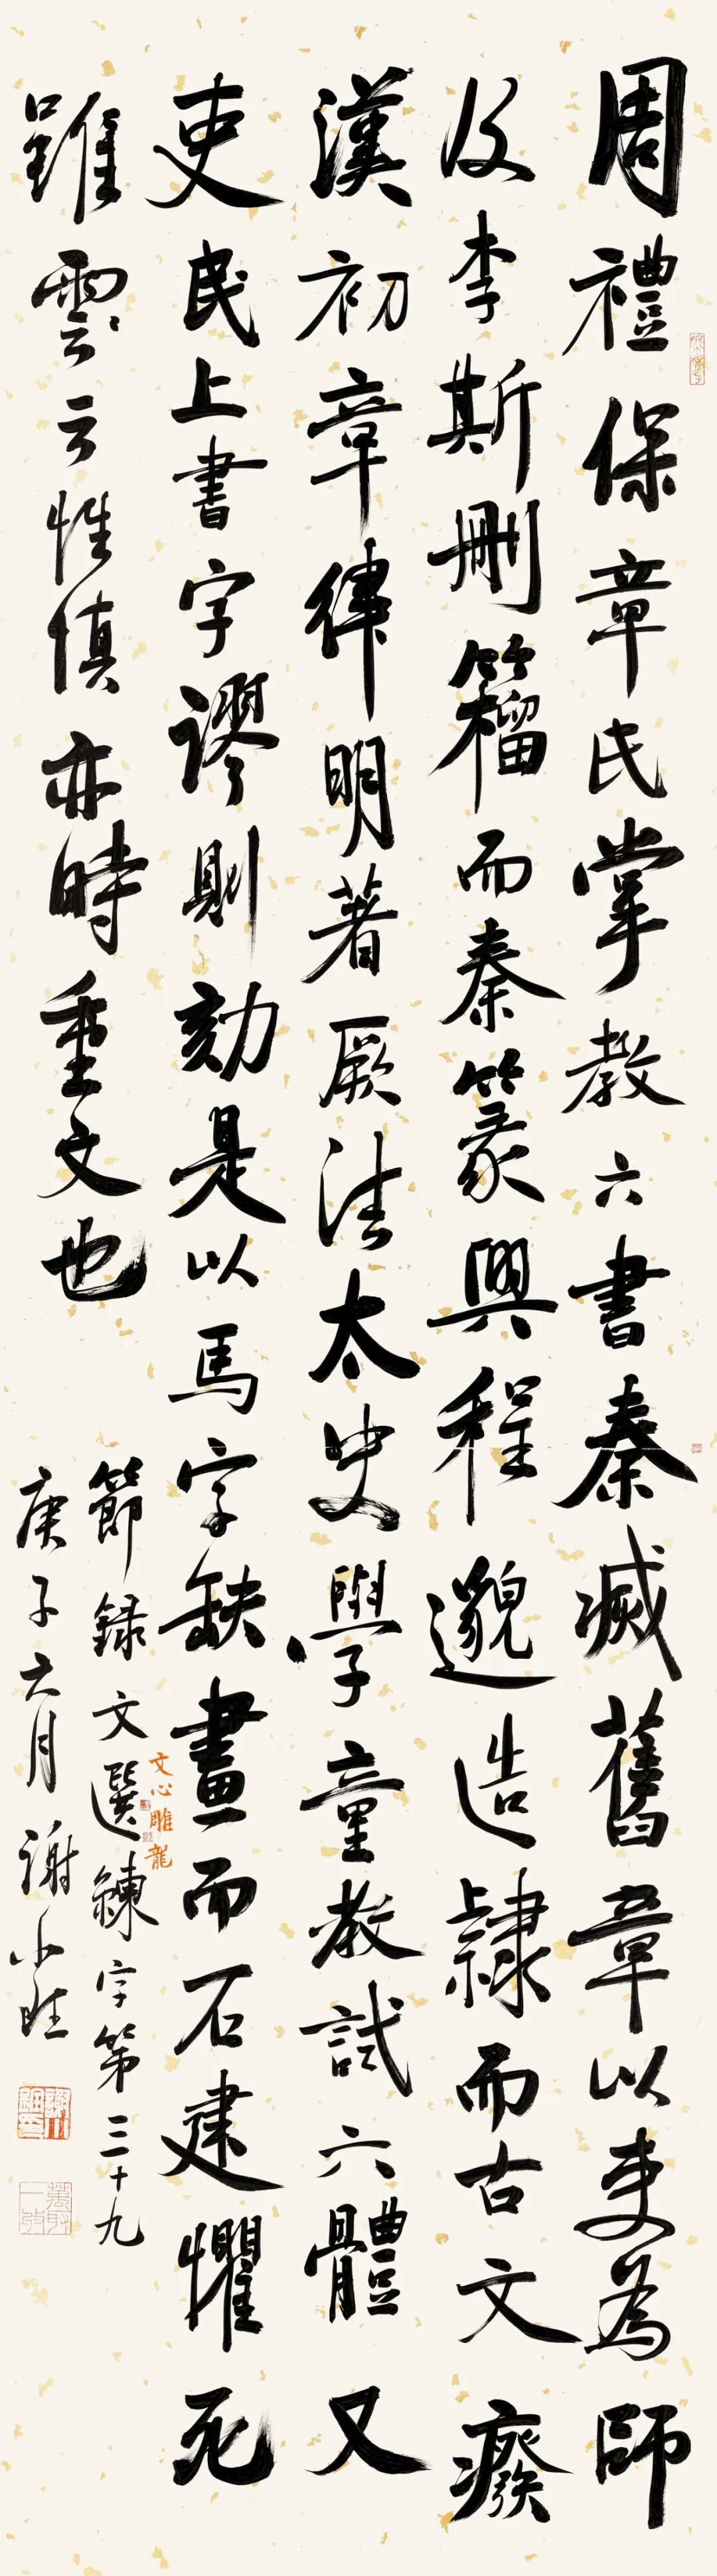 周禮保章氏掌教六書秦滅舊章以吏為師
及李斯刪籀而秦篆興程邈造隸而古文癈
漢初章律明著厥法太史學童教試六體又
吏民上書字謬則劾是以馬字缺畫而石建懼死
雖雲云性慎亦時重文也
節錄文選鍊字第三十九
文心雕龍
庚子六月謝小